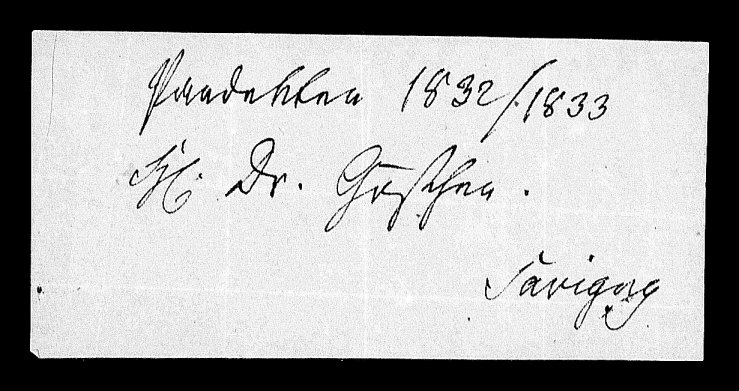 Pandekten 1832/1833
H. Dr. Göschen.
Savigny